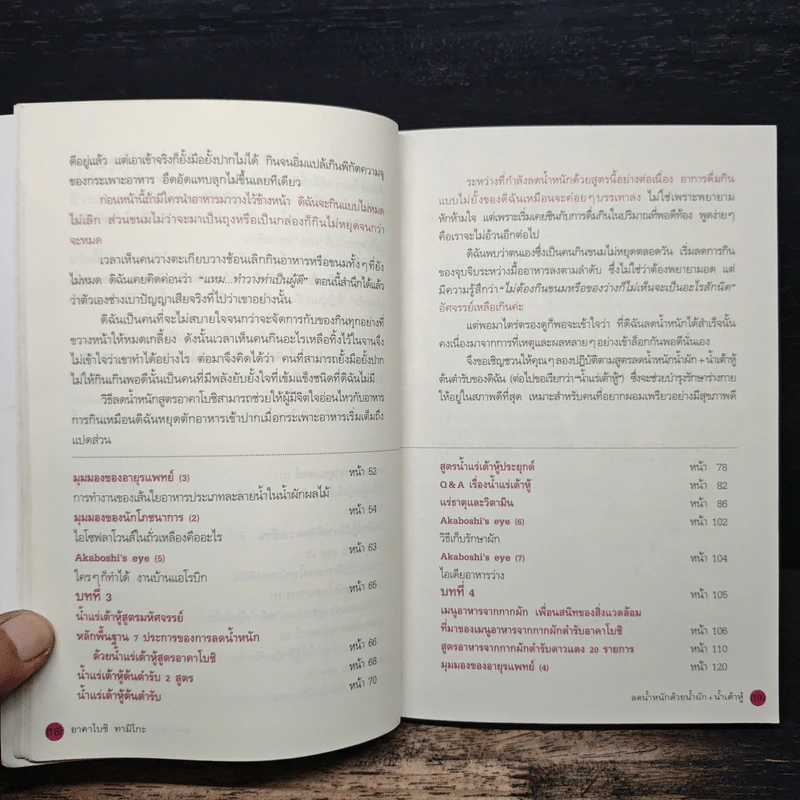 ดีอยู่แล้ว แต่เอาเข้าจริงก็ยั้งมือยั้งปากไม่ได้ กินจนอิ่มแปล้เกินพิกัดความจุ
ของกระเพาะอาหาร อึดอัดแทบลุกไม่ขึ้นเลยทีเดียว
ก่อนหน้านี้ถ้ามีใครนำอาหารมาวางไว้ข้างหน้า ดิฉันจะกินแบบไม่หมด
ไม่เลิก ส่วนขนมไม่ว่าจะมาเป็นถุงหรือเป็นกล่องก็กินไม่หยุดจนกว่า
จะหมด
เวลาเห็นคนวางตะเกียบวางช้อนเลิกกินอาหารหรือขนมทั้งๆ ที่ยัง
ไม่หมด ดิฉันเคยคิดค่อนว่า "แหม...ทำวางท่าเป็นผู้ดี" ตอนนี้สำนึกได้แล้ว
ว่าตัวเองช่างเบาปัญญาเสียจริงที่ไปว่าเขาอย่างนั้น
ดิฉันเป็นคนที่จะไม่สบายใจจนกว่าจะจัดการกับของกินทุกอย่างที่
ขวางหน้าให้หมดเกลี้ยง ดังนั้นเวลาเห็นคนกินอะไรเหลือทิ้งไว้ในจานจึง
ไม่เข้าใจว่าเขาทำได้อย่างไร ต่อมาจึงคิดได้ว่า คนที่สามารถยั้งมือยั้งปาก
ไม่ให้กินเกินพอดีนั้นเป็นคนที่มีพลังยับยั้งใจที่เข้มแข็งชนิดที่ดิฉันไม่มี
วิธีลดน้ำหนักสูตรอาคาโบชิสามารถช่วยให้ผู้มีจิตใจอ่อนไหวกับอาหาร
การกินเหมือนดิฉันหยุดตักอาหารเข้าปากเมื่อกระเพาะอาหารเริ่มเต็มถึง
แปดส่วน
มุมมองของอายุรแพทย์ (3) หน้า 52
การทำงานของเส้นใยอาหารประเภทละลายน้ำในน้ำผักผลไม้
มุมมองของนักโภชนาการ (2) หน้า 54
ไอโซฟลาโวนส์ในถั่วเหลืองคืออะไร
Akaboshi's eye (5) หน้า 63
ใครๆ ก็ทำได้ งานบ้านแอโรบิก
บทที่ 3 หน้า 65
น้ำแร่เต้าหู้สูตรมหัศจรรย์
หลักพื้นฐาน 7 ประการของการลดน้ำหนัก
ด้วยน้ำแร่เต้าหู้สูตรอาคาโบชิ หน้า 66
น้ำแร่เต้าหู้ต้นตำรับ 2 สูตร หน้า 68
น้ำแร่เต้าหู้ต้นตำรับ หน้า 70
(18) อาคาโบชิ ทามิโกะ
ระหว่างที่กำลังลดน้ำหนักด้วยสูตรนี้อย่างต่อเนื่อง อาการดื่มกิน
แบบไม่ยั้งของดิฉันเหมือนจะค่อยๆ บรรเทาลง ไม่ใช่เพราะพยายาม
หักห้ามใจ แต่เพราะเริ่มเคยชินกับการดื่มกินในปริมาณที่พอดีท้อง พูดง่ายๆ
คือเราจะไม่อ้วนอีกต่อไป
ดิฉันพบว่าตนเองซึ่งเป็นคนกินขนมไม่หยุดตลอดวัน เริ่มลดการกิน
ของจุบจิบระหว่างมื้ออาหารลงตามลำดับ ซึ่งไม่ใช่ว่าต้องพยายามอด แต่
มีความรู้สึกว่า "ไม่ต้องกินขนมหรือของว่างก็ไม่เห็นจะเป็นอะไรสักนิด"
อัศจรรย์เหลือเกินค่ะ
แต่พอมาไตร่ตรองดูก็พอจะเข้าใจว่า ที่ดิฉันลดน้ำหนักได้สำเร็จนั้น
คงเนื่องมาจากการที่เหตุและผลหลายๆ อย่างเข้าล็อกกันพอดีนั่นเอง
จึงขอเชิญชวนให้คุณๆ ลองปฏิบัติตามสูตรลดน้ำหนักน้ำผัก + น้ำเต้าหู้
ต้นตำรับของดิฉัน (ต่อไปขอเรียกว่า "น้ำแร่เต้าหู้") ซึ่งจะช่วยบำรุงรักษาร่างกาย
ให้อยู่ในสภาพดีที่สุด เหมาะสำหรับคนที่อยากผอมเพรียวอย่างมีสุขภาพดี
สูตรน้ำแร่เต้าหู้ประยุกต์ หน้า 78
Q & A เรื่องน้ำแร่เต้าหู้ หน้า 82
แร่ธาตุและวิตามิน หน้า 86
Akaboshi's eye (6) หน้า 102
วิธีเก็บรักษาผัก
Akaboshi's eye (7) หน้า 104
ไอเดียอาหารว่าง
บทที่ 4 หน้า 105
เมนูอาหารจากกากผัก เพื่อนสนิทของสิ่งแวดล้อม
ที่มาของเมนูอาหารจากกากผักตำรับอาคาโบชิ หน้า 106
สูตรอาหารจากกากผักตำรับดาวแดง 20 รายการ หน้า 110
มุมมองของอายุรแพทย์ (4) หน้า 120
ลดน้ำหนักด้วยน้ำผัก + น้ำเต้าหู้ (19)